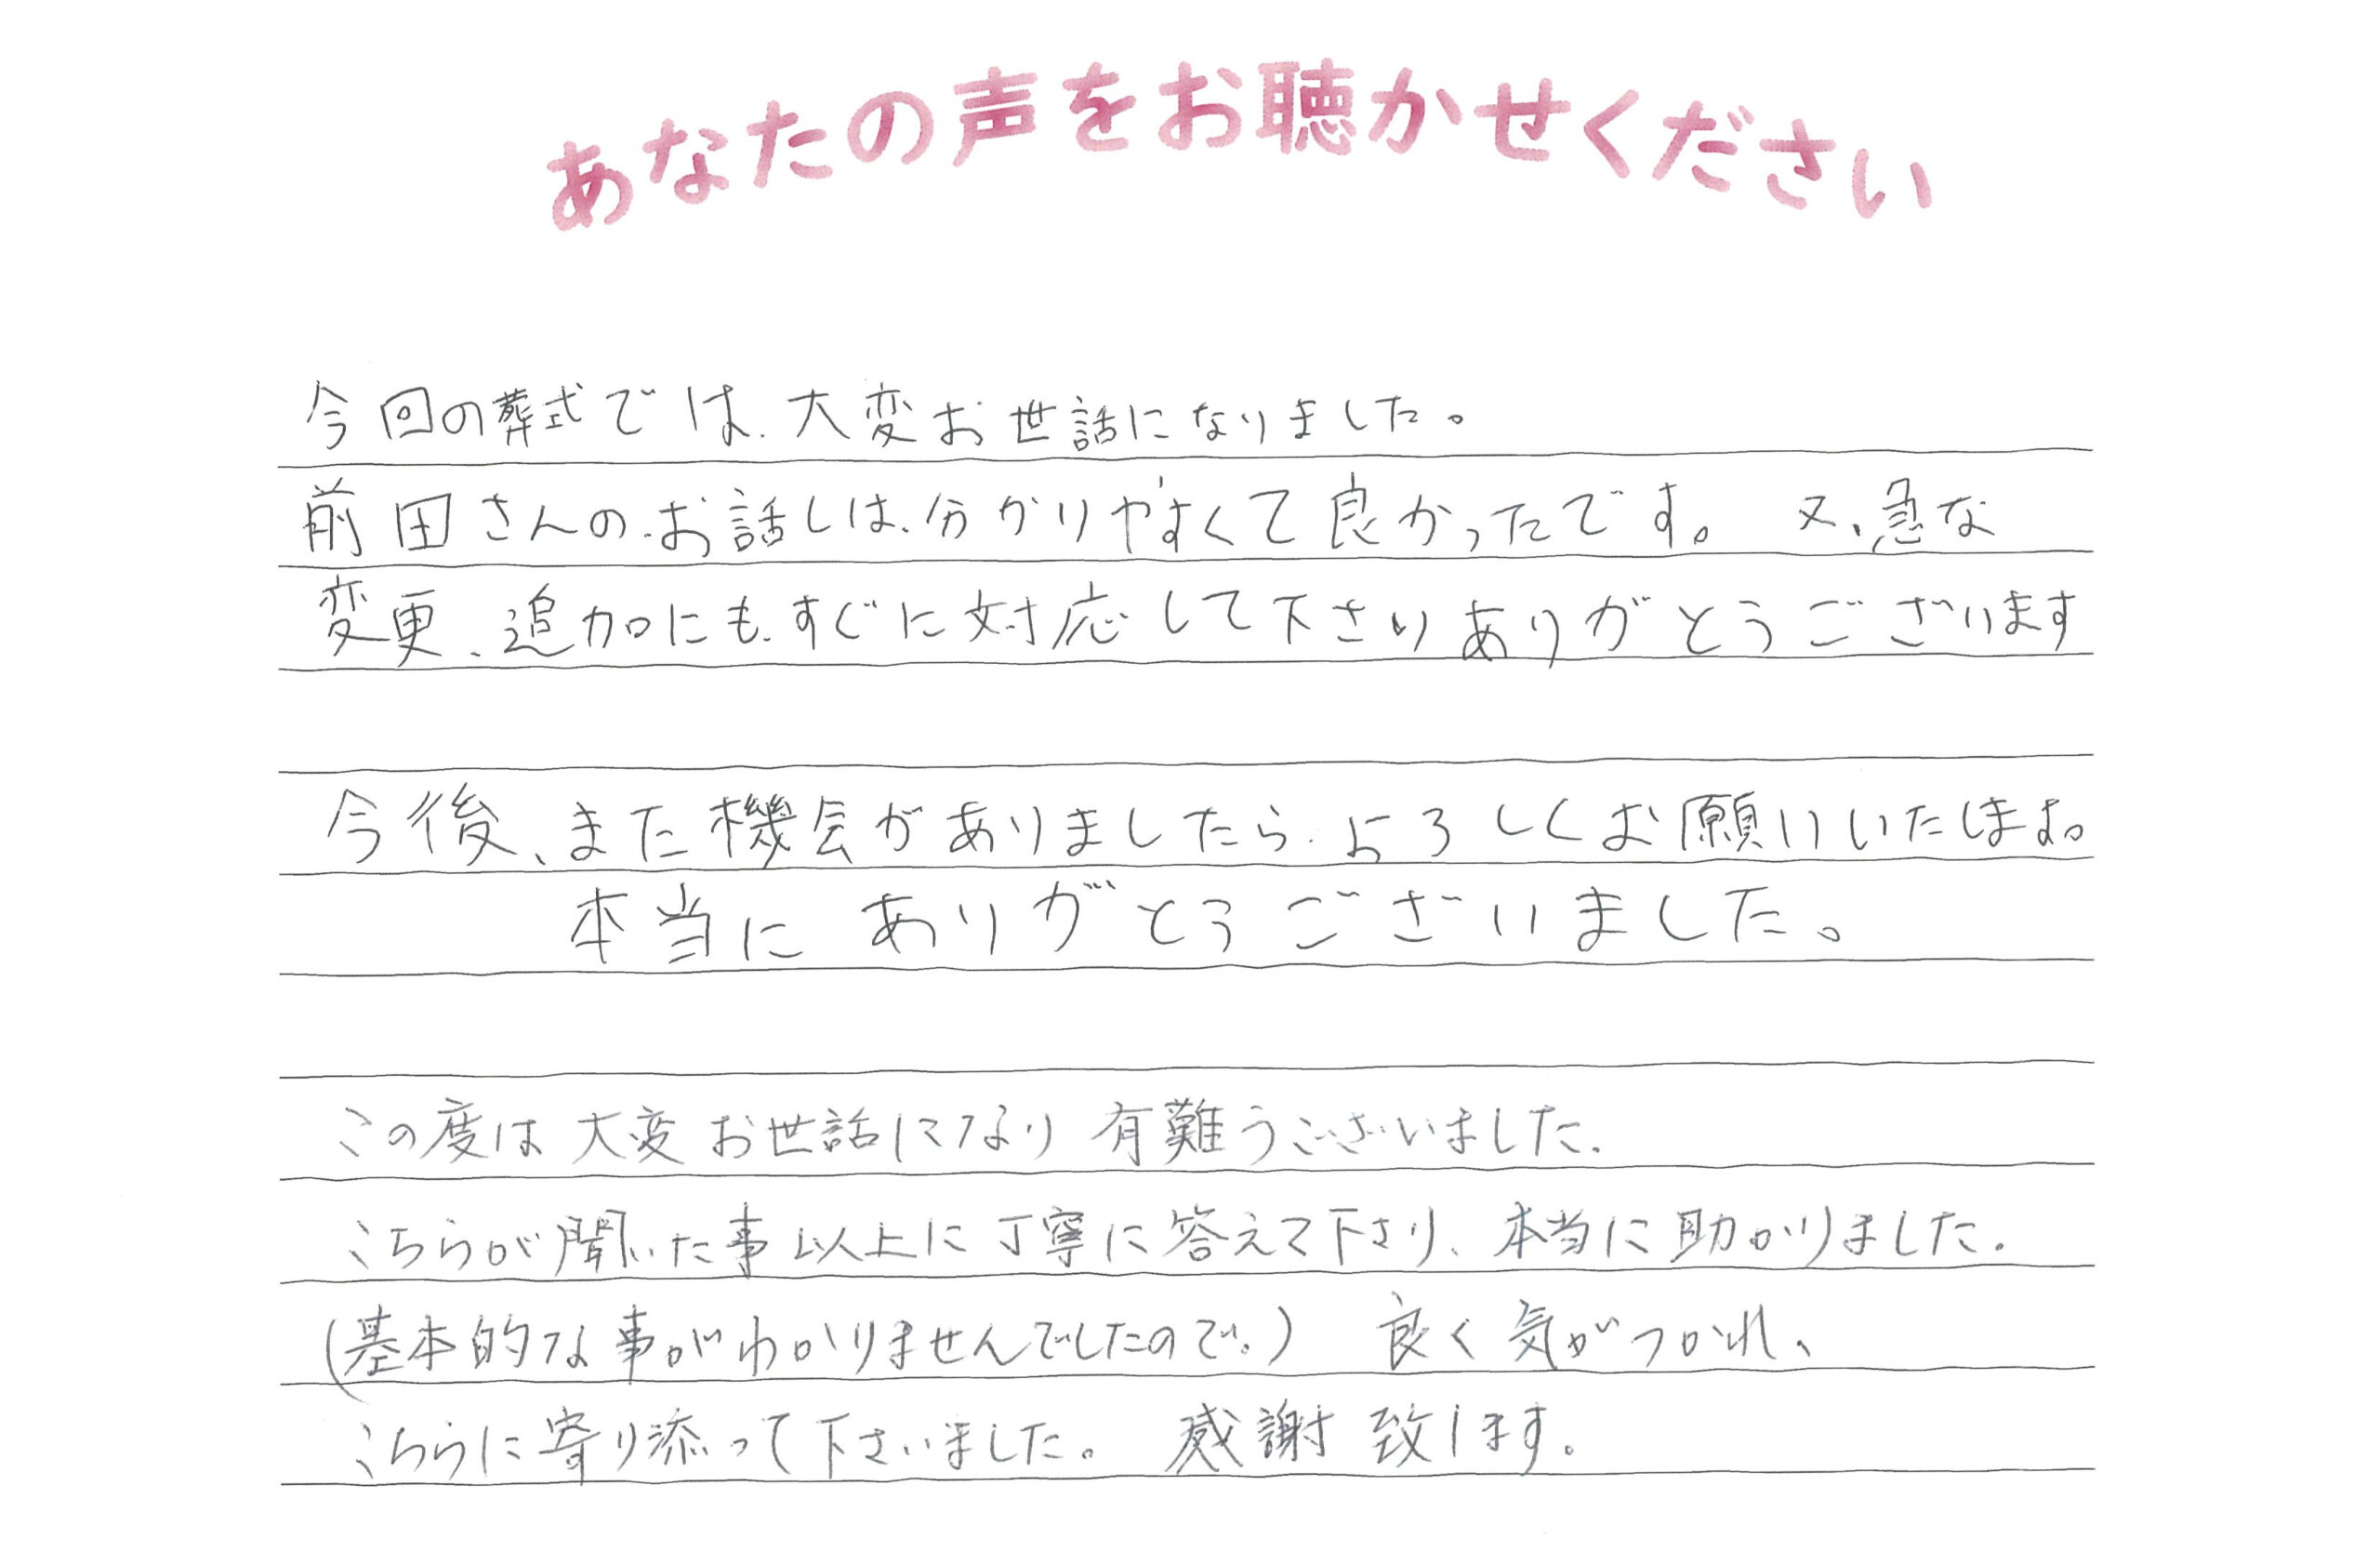 あなたの声をお聴かせください
今回の葬式では、大変お世話になりました。
前田さんのお話しは、分かりやすくて良かったです。又、急な
変更、追加にも、すぐに対応して下さりありがとうございます
今後、また機会がありましたら、よろしくお願いいたします。
本当に ありがとうございました。
この度は大変お世話になり有難うございました。
こちらが聞いた事以上に丁寧に答えて下さり、本当に助かりました。
(基本的な事がわかりませんでしたので。) 良く気がつかれ、
こちらに寄り添って下さいました。感謝致します。